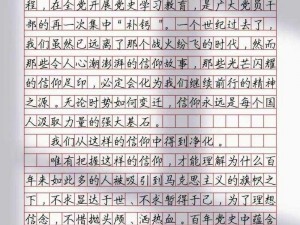 程，在全党开展党史学习教育，是广大党员干
部的再一次集中“补钙”。一个世纪过去了，
我们虽然已远离了那个战火纷飞的时代，然而
那些令人心潮澎湃的信仰故事，那些光芒闪耀
的信仰足印，必定会化为我们继续前行的精神
之源，无论时势如何变迁，信仰永远是每个国
人汲取力量的强大基石。
我们从这样的信仰中得到净化。
唯有把握这样的信仰，才能理解为什么百
年来如此多的人被吸引到马克思主义的旗帜之
下，不求达于世、不求暂得于己，为了理想
信念，不惜抛头颅、洒热血。百年党史中蕴含